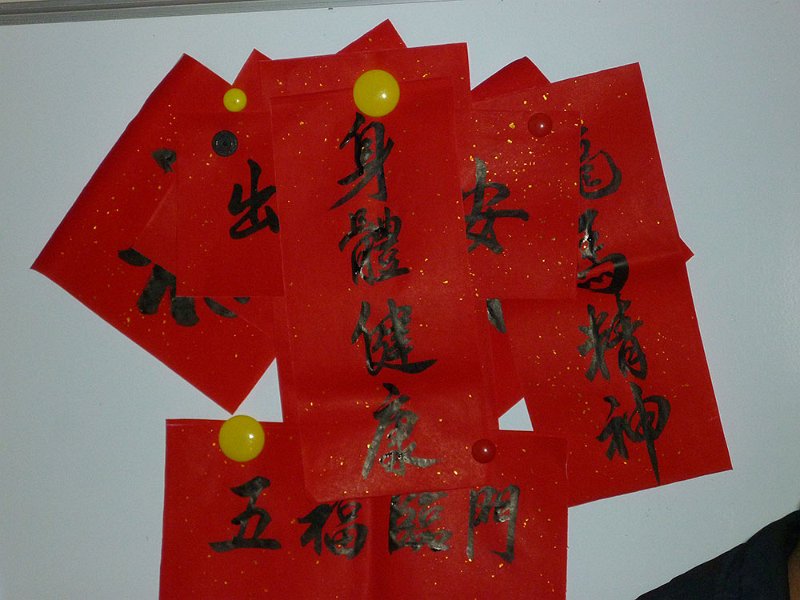 身體健康
出
安
龍馬精神
五福臨門